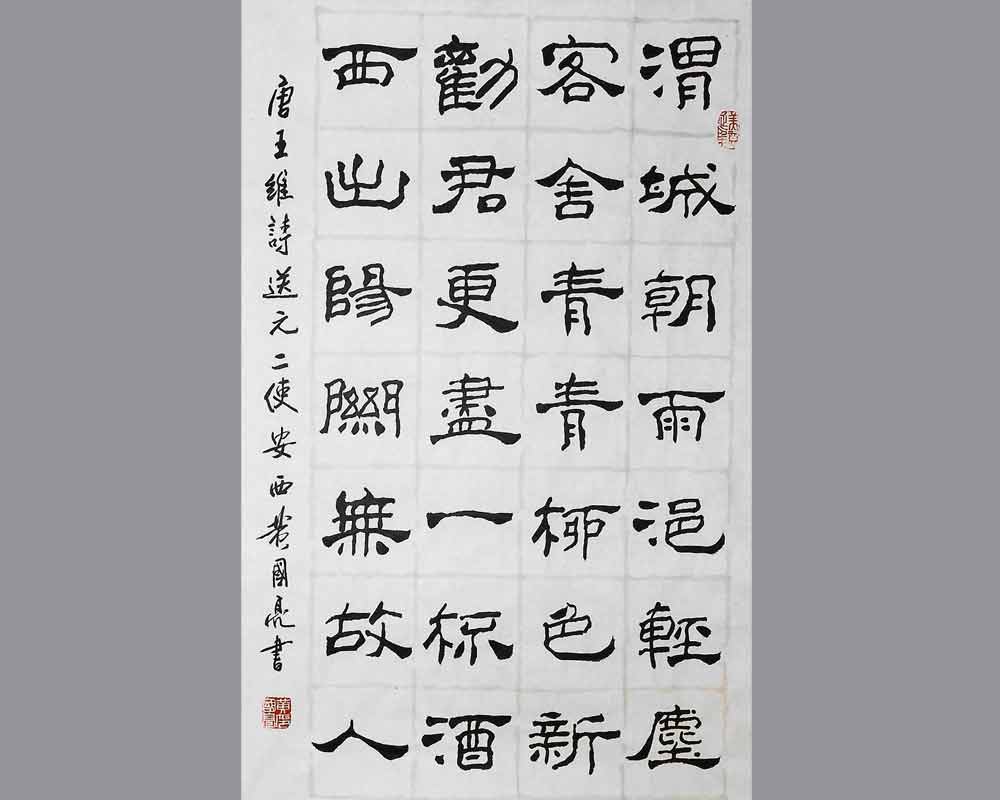 渭城朝雨浥輕塵
客舍青青柳色新
勸君更盡一杯酒
西出陽關無故人
唐王維詩送元二使安西黄國亮書